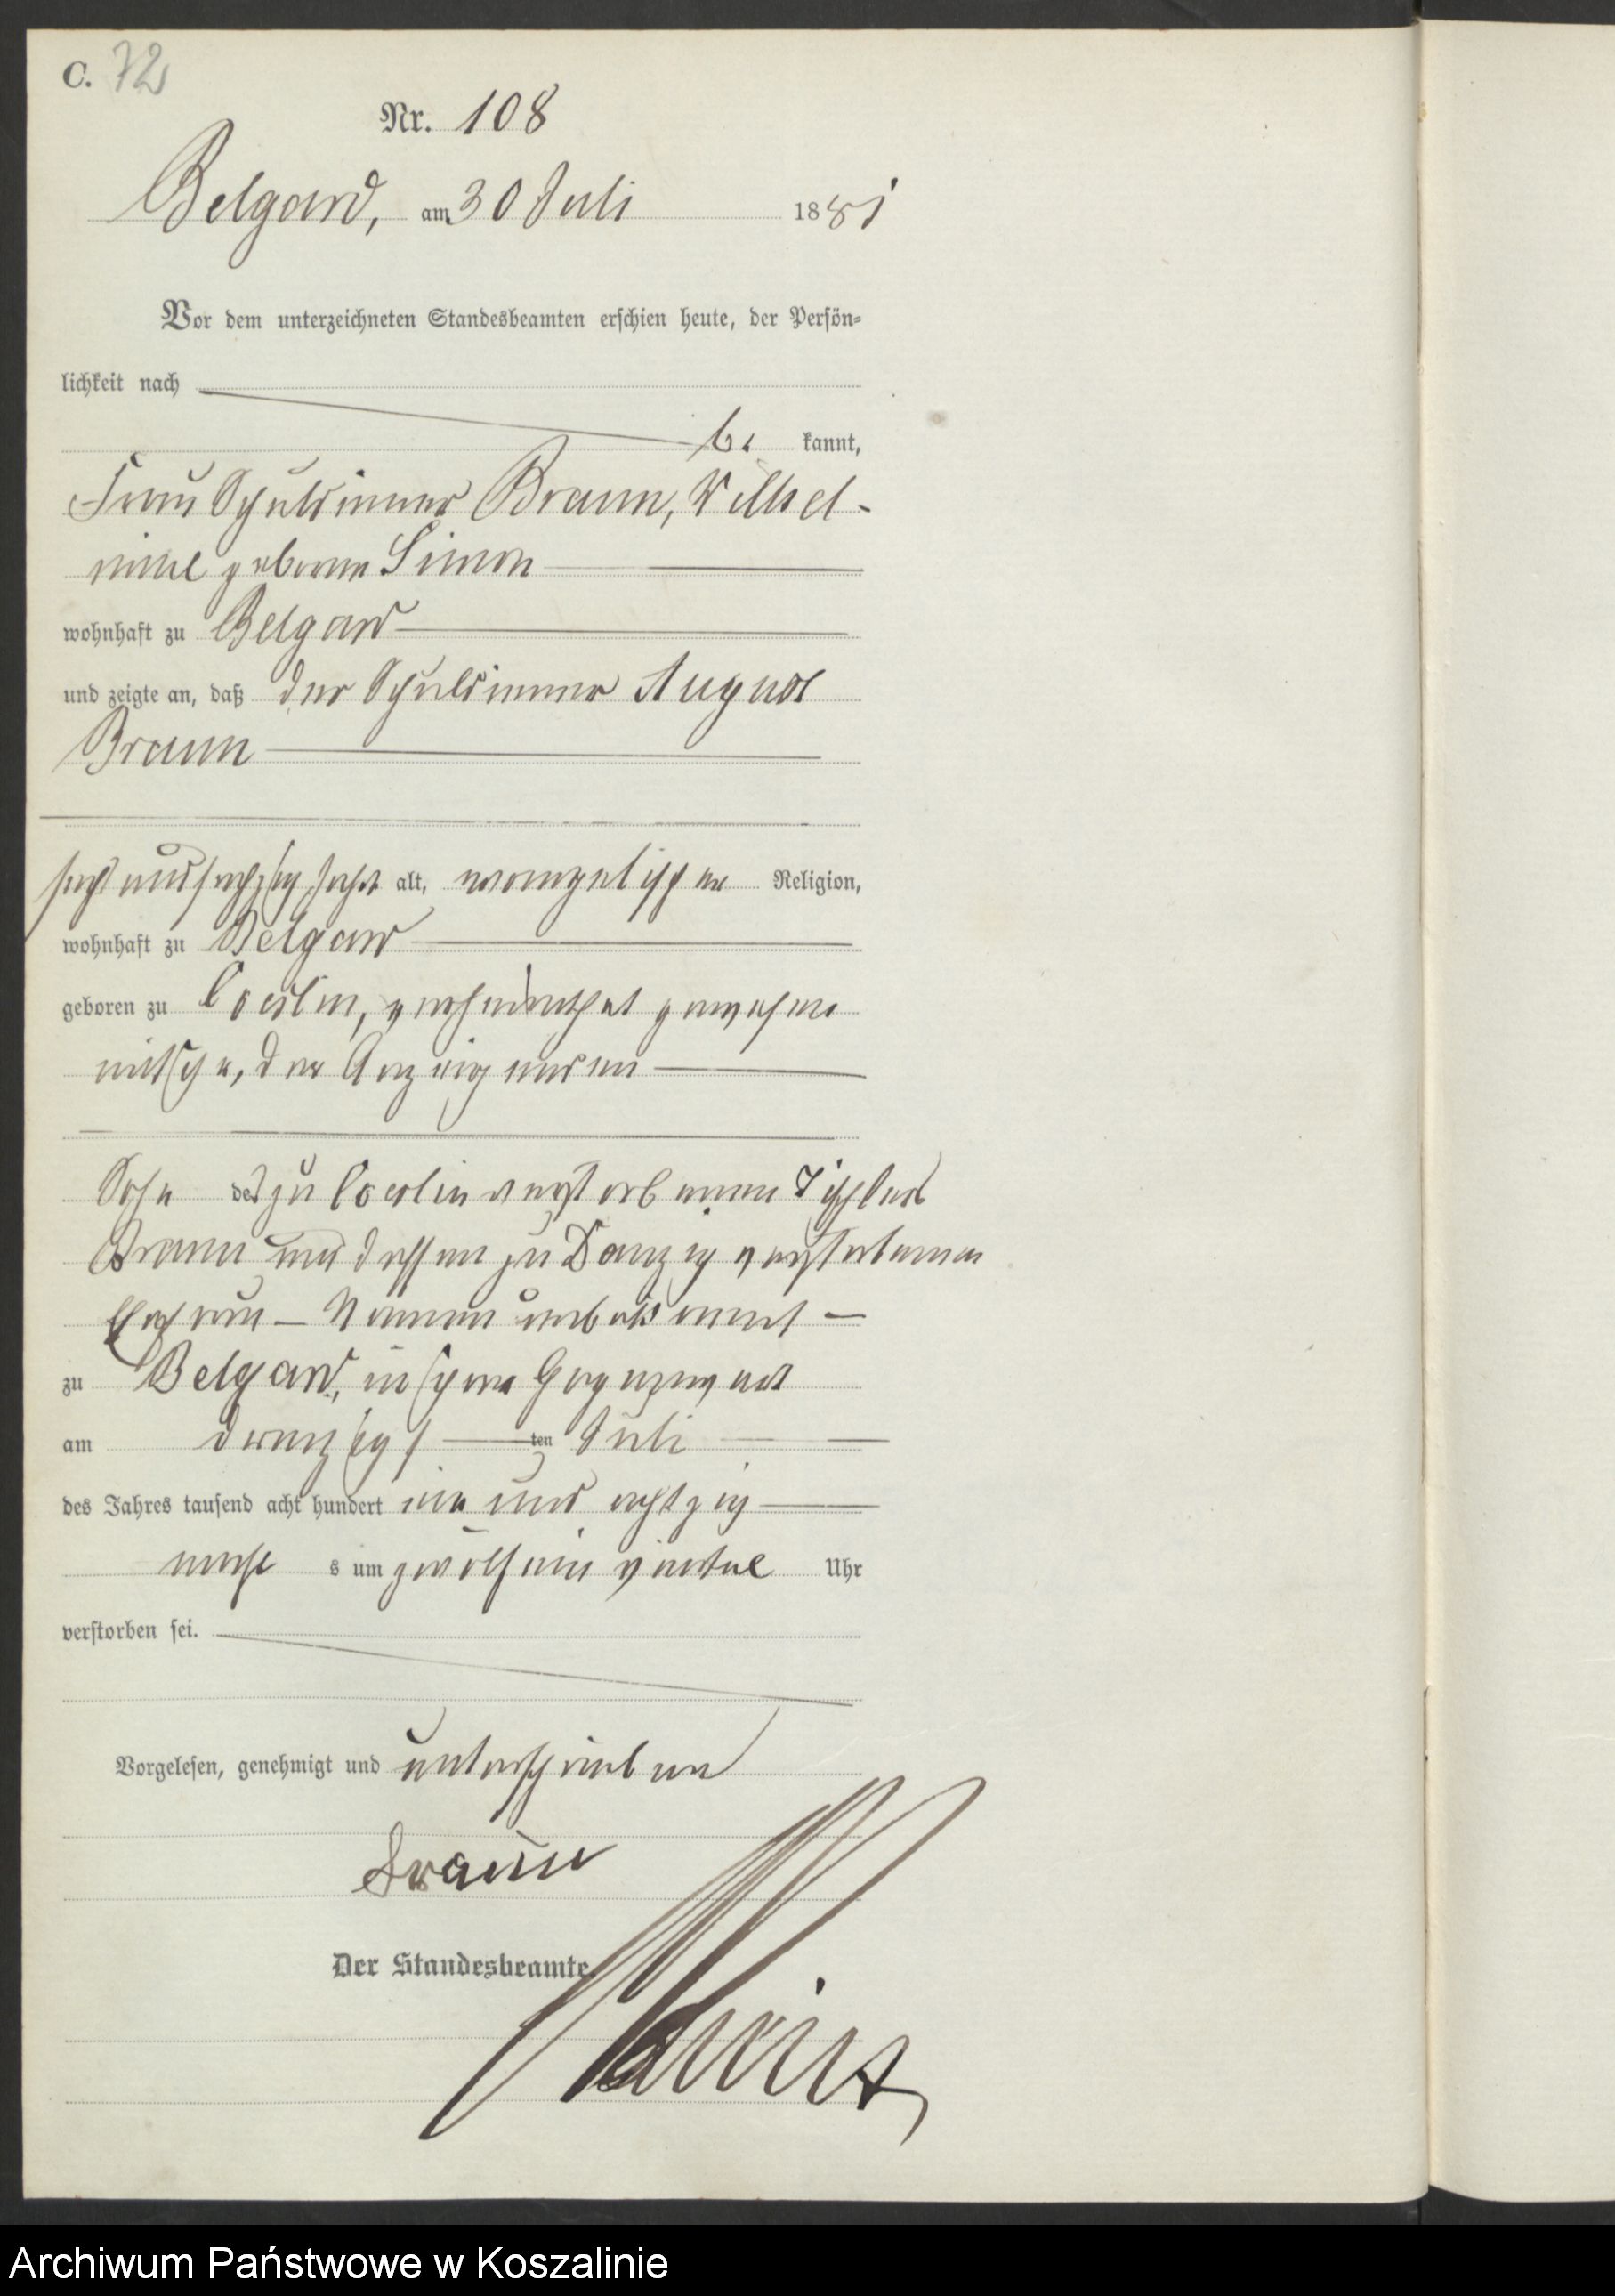 C. 72
Nr. 108
Belgard, am 30 Juli 1881
Vor dem unterzeichneten Standesbeamten erschien heute, der Persön-
lichkeit nach
be kannt,
Frau Schuldiener Braun, Wilhel-
mine geborene Simon
wohnhaft zu Belgard
und zeigte an, daß der Schuldiener August
Braun
sechsundsechszig Jahre alt, evangelischer Religion,
wohnhaft zu Belgard
geboren zu Coeslin, verheirathet gewesen
mit ihr, der Anzeigenden
Sohn des zu Coeslin verstorbenen Tischlers
Braun und dessen zu Danzig verstorbenen
Ehefrau – Namen unbekannt –
zu Belgard, in ihrer Gegenwart
am dreizigs ten Juli
des Jahres tausend acht hundert ein und achtzig
s um zwölf ein viertel Uhr
verstorben sei.
Vorgelesen, genehmigt und unterschrieben
Braun
Der Standesbeamte.
Archiwum Państwowe w Koszalinie